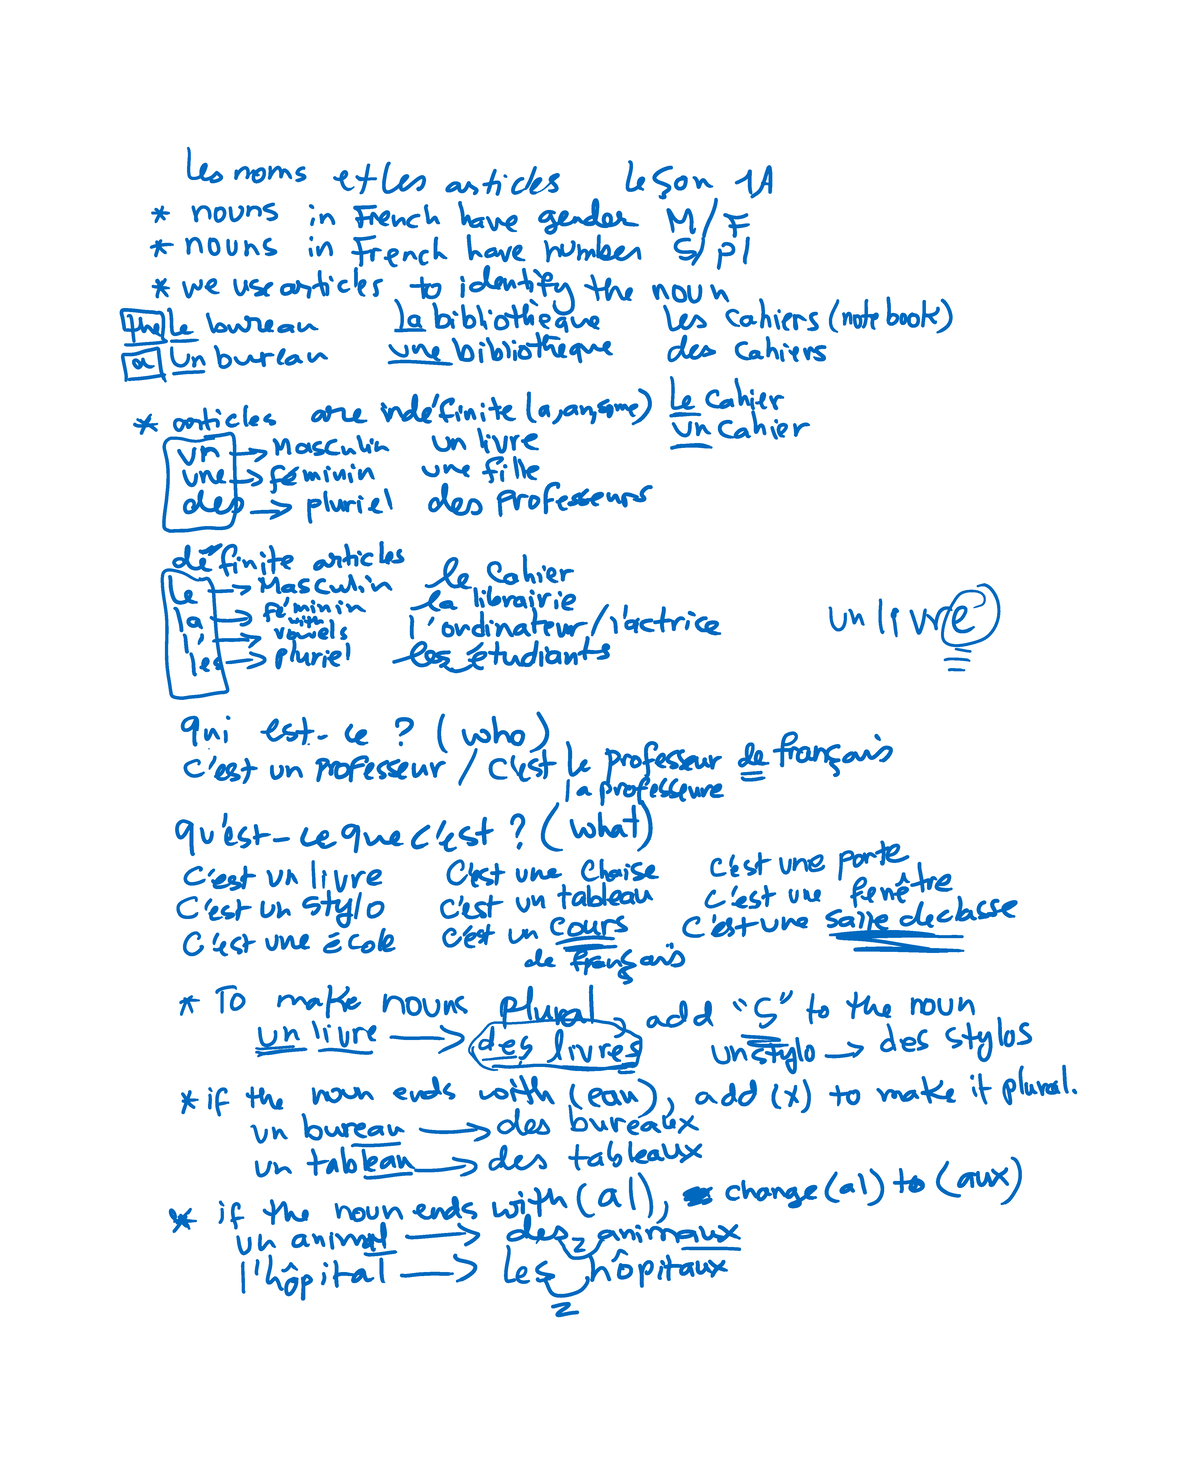 Les noms et les articles Leçon 1A
* nouns in French have gender M/F
* nouns in French have number S/Pl
* we use articles to identify the noun
the Le bureau la bibliothèque Les cahiers (notebook)
a un bureau une bibliothèque des cahiers
* articles are indéfinite (a, an, some) Le cahier
un cahier
un → Masculin un livre
une → féminin une fille
des → pluriel des professeurs
définite articles
Le → Masculin le cahier
la → féminin la librairie
l' → with vowels l'ordinateur/l'actrice un livre
les → pluriel les étudiants
qui est-ce ? (who)
c'est un professeur / c'est le professeur de français
la professeure
qu'est-ce que c'est ? (what)
c'est un livre c'est une chaise c'est une porte
c'est un stylo c'est un tableau c'est une fenêtre
c'est une école c'est un cours c'est une salle de classe
de français
* To make nouns plural, add "S" to the noun
un livre → des livres un stylo → des stylos
* if the noun ends with (eau), add (x) to make it plural.
un bureau → des bureaux
un tableau → des tableaux
* if the noun ends with (al), change (al) to (aux)
un animal → des animaux
z
l'hôpital → les hôpitaux
z